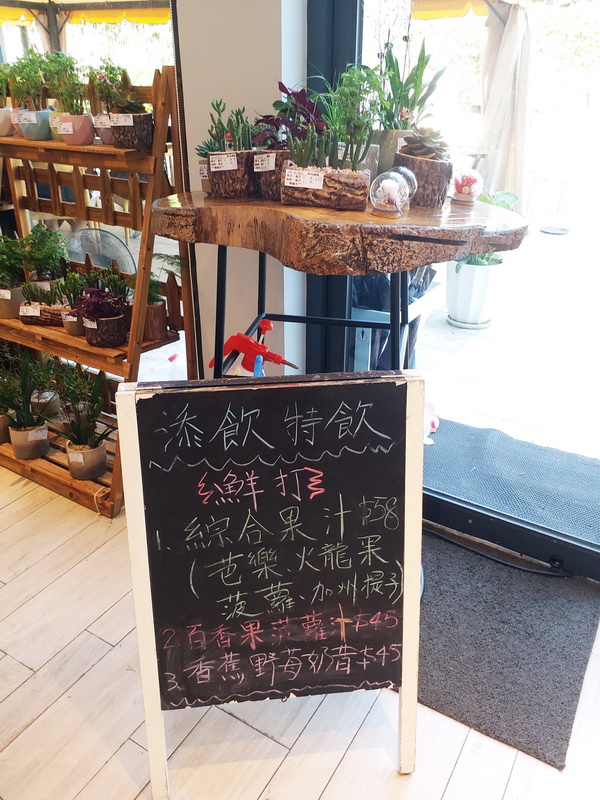 添飲 特飲
鮮打
1. 綜合果汁 $58
(芭樂、火龍果
菠蘿、加州提子)
2. 百香果菠蘿汁 $45
3. 香蕉野莓奶昔 $45